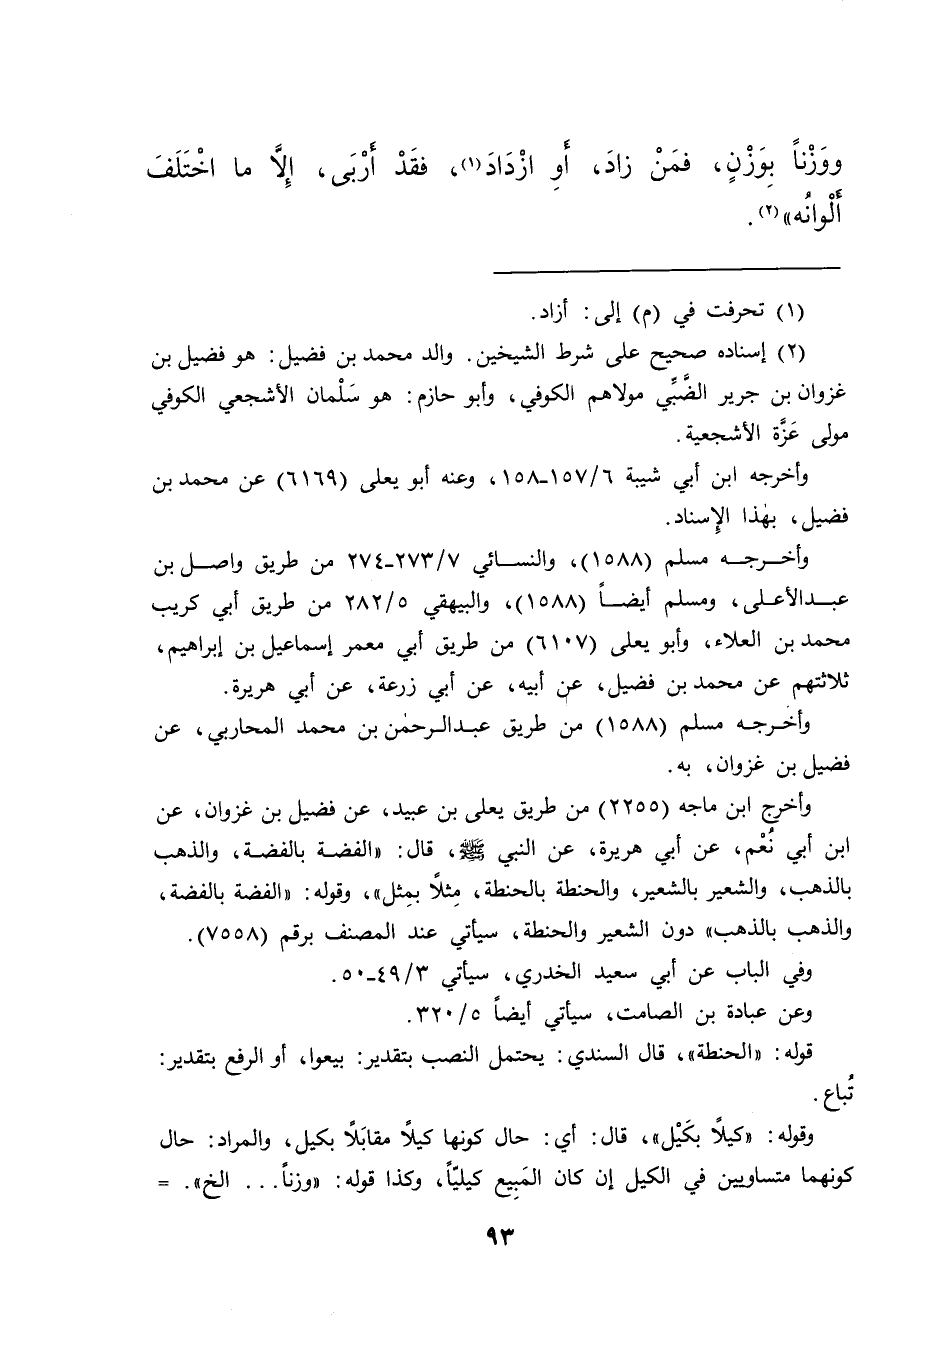 ووَزْناً بِوَزْنٍ، فمَنْ زادَ، أَوِ ازْدَادَ(١)، فقَدْ أَرْبَى، إِلَّا ما اخْتَلَفَ
أَلْوانُه»(٢).
(١) تحرفت في (م) إلى: أزاد.
(٢) إسناده صحيح على شرط الشيخين. والد محمد بن فضيل: هو فضيل بن
غزوان بن جرير الضَّبِّي مولاهم الكوفي، وأبو حازم: هو سَلْمان الأشجعي الكوفي
مولى عَزَّة الأشجعية.
وأخرجه ابن أبي شيبة ١٥٧/٦-١٥٨، وعنه أبو يعلى (٦١٦٩) عن محمد بن
فضيل، بهٰذا الإِسناد.
وأخرجه مسلم (١٥٨٨)، والنسائي ٢٧٣/٧-٢٧٤ من طريق واصل بن
عبدالأعلى، ومسلم أيضاً (١٥٨٨)، والبيهقي ٢٨٢/٥ من طريق أبي كريب
محمد بن العلاء، وأبو يعلى (٦١٠٧) من طريق أبي معمر إسماعيل بن إبراهيم،
ثلاثتهم عن محمد بن فضيل، عن أبيه، عن أبي زرعة، عن أبي هريرة.
وأخرجه مسلم (١٥٨٨) من طريق عبدالرحمٰن بن محمد المحاربي، عن
فضيل بن غزوان، به.
وأخرج ابن ماجه (٢٢٥٥) من طريق يعلى بن عبيد، عن فضيل بن غزوان، عن
ابن أبي نُعْم، عن أبي هريرة، عن النبي ﷺ، قال: «الفضة بالفضة، والذهب
بالذهب، والشعير بالشعير، والحنطة بالحنطة، مِثلاً بمِثل»، وقوله: «الفضة بالفضة،
والذهب بالذهب» دون الشعير والحنطة، سيأتي عند المصنف برقم (٧٥٥٨).
وفي الباب عن أبي سعيد الخدري، سيأتي ٤٩/٣-٥٠.
وعن عبادة بن الصامت، سيأتي أيضاً ٣٢٠/٥.
قوله: «الحنطة»، قال السندي: يحتمل النصب بتقدير: بيعوا، أو الرفع بتقدير:
تُباع.
وقوله: «كيلاً بكَيْل»، قال: أي: حال كونها كيلاً مقابَلاً بكيل، والمراد: حال
كونهما متساويين في الكيل إن كان المَبِيع كيليّاً، وكذا قوله: «وزناً... الخ». =
٩٣